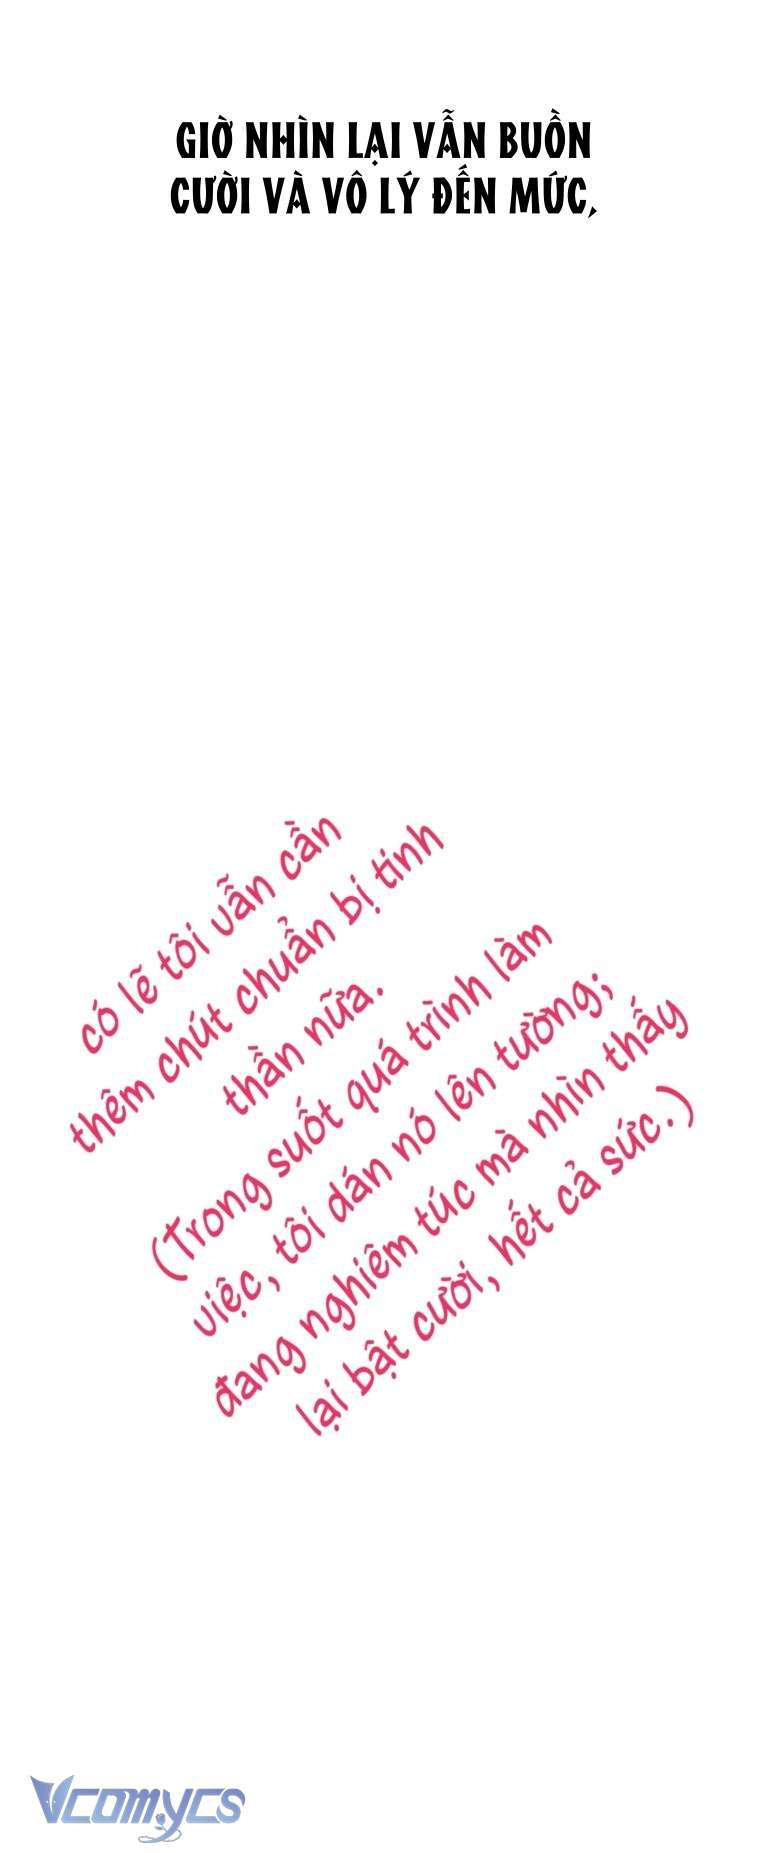 GIỜ NHÌN LẠI VẪN BUỒN
CƯỜI VÀ VÔ LÝ ĐẾN MỨC,
có lẽ tôi vẫn cần
thêm chút chuẩn bị tinh
thần nữa.
(Trong suốt quá trình làm
việc, tôi dán nó lên tường;
đang nghiêm túc mà nhìn thấy
lại bật cười, hết cả sức.)
Vcomycs